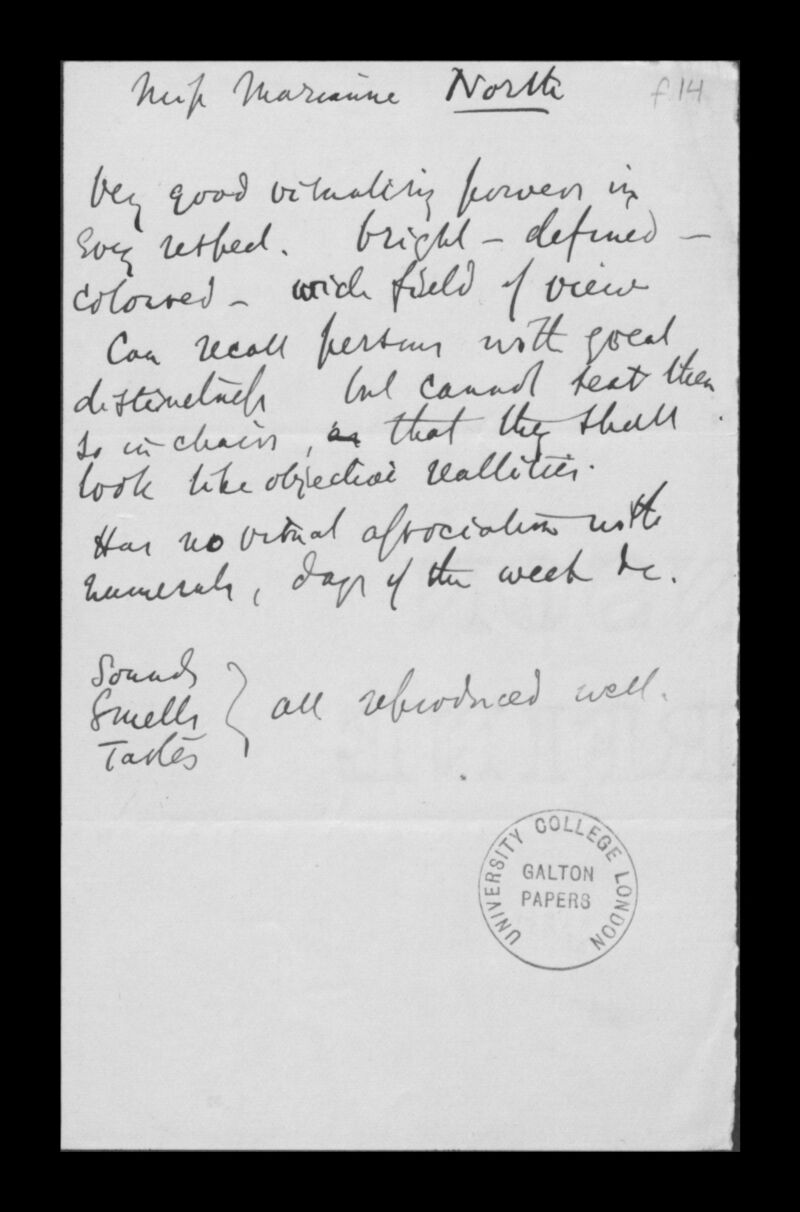 Miss Marianne North
f 14
Very good visualising powers in
every respect. bright – defined –
coloured – wide field of view
Can recall persons with great
distinctness but cannot seat them
so in chairs, as that they shall
look like objective reallities.
Has no visual association with
numerals, days of the week &c.
Sounds
Smells } all reproduced well.
Tastes
UNIVERSITY COLLEGE LONDON
GALTON
PAPERS